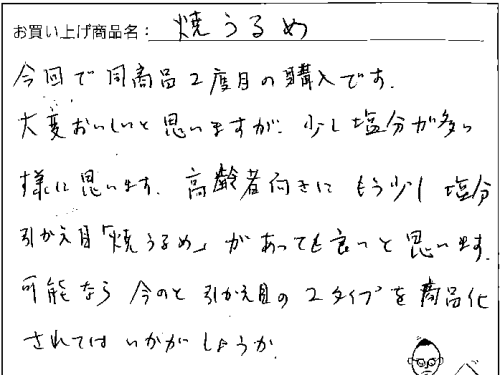 お買い上げ商品名：焼うるめ
今回で同商品2度目の購入です.
大変おいしいと思いますが、少し塩分が多い
様に思います. 高齢者向きにもう少し塩分
引かえ目「焼うるめ」があっても良いと思います.
可能なら今のと引かえ目の2タイプを商品化
されてはいかがしょうか.